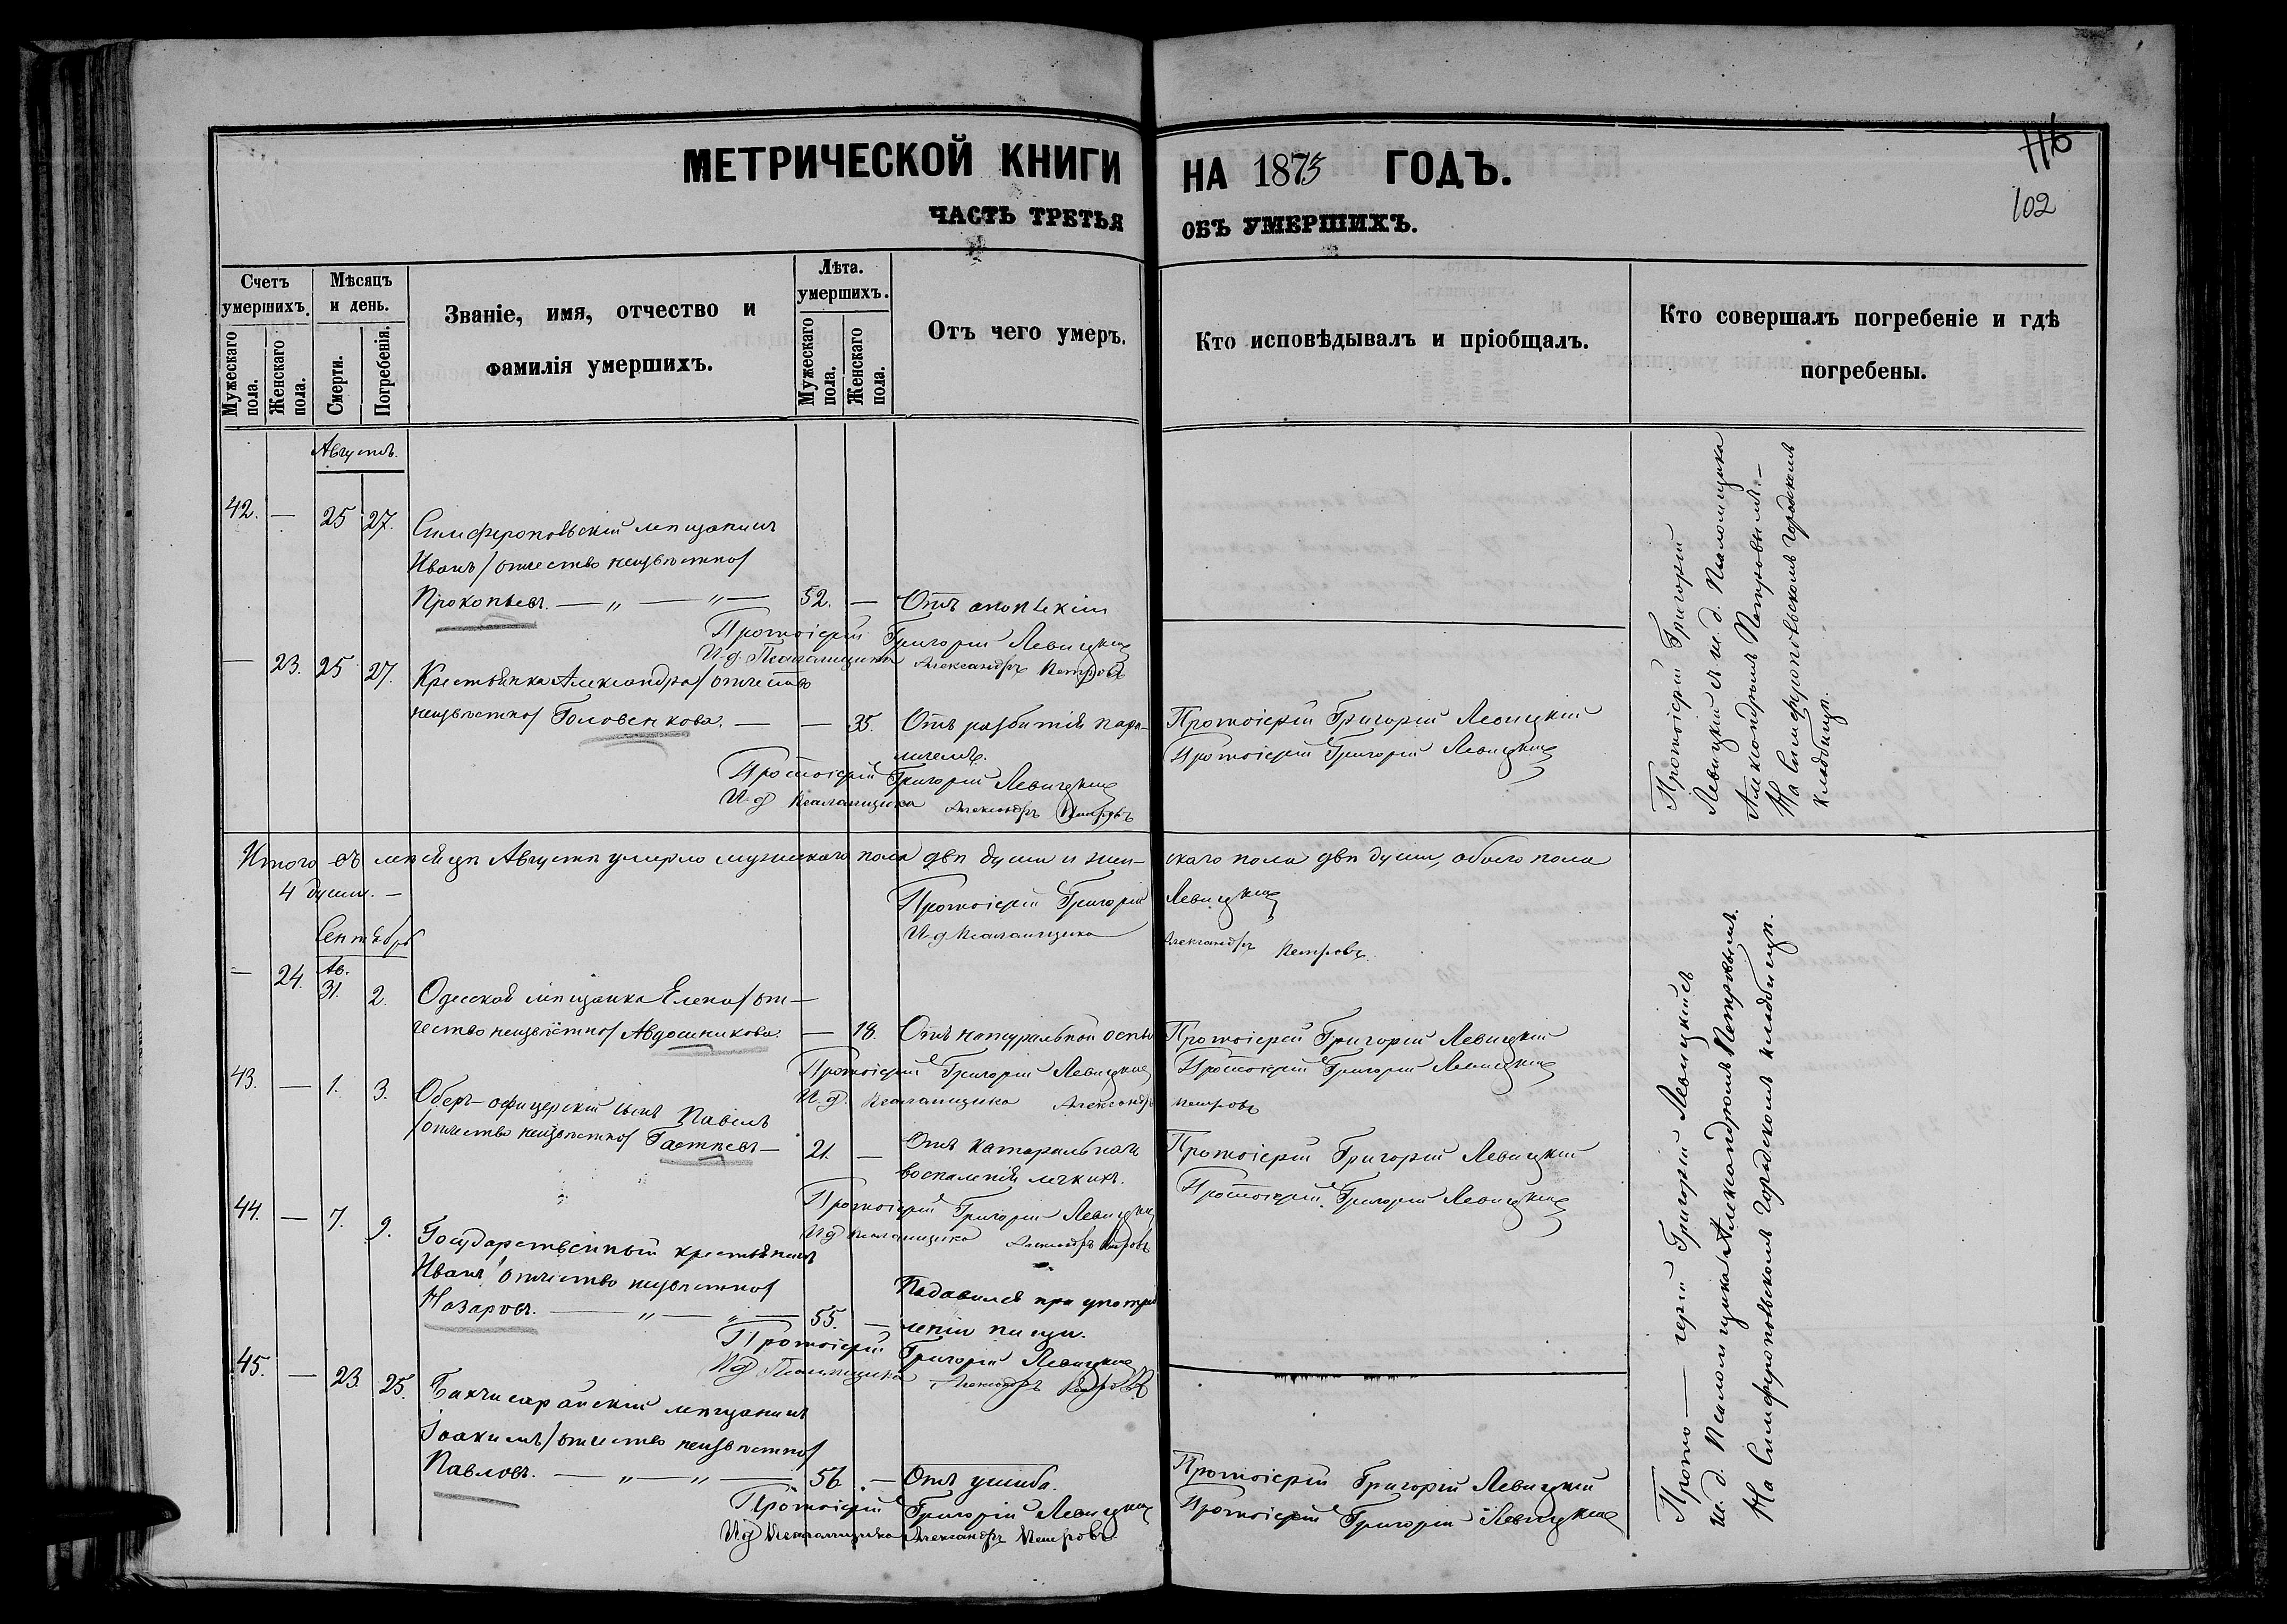 МЕТРИЧЕСКОЙ КНИГИ НА 1873 ГОДЪ.
ЧАСТЬ ТРЕТЬЯ ОБЪ УМЕРШИХЪ.
116
102
Счетъ умершихъ.
Мужескаго пола.
Женскаго пола.
Мѣсяцъ и день.
Смерти.
Погребенія.
Званіе, имя, отчество и
фамилія умершихъ.
Лѣта.
умершихъ.
Мужескаго пола.
Женскаго пола.
Отъ чего умеръ.
Кто исповѣдывалъ и пріобщалъ.
Кто совершалъ погребеніе и гдѣ
погребены.
Августъ.
42. — 25 27. Симферопольскій мѣщанинъ
Иванъ /отчество неизвѣстно/
Прокопьевъ. — „ — „ — 52. — Отъ апоплекіи
Протоіерей Григорій Левицкій
И. д. Псаломщика Александръ Петровъ
— 23. 25 27. Крестьянка Александра /отчество
неизвѣстно/ Головенкова. — — 35. Отъ разбитія пара-
личемъ.
Протоіерей Григорій Левицкій
Протоіерей Григорій Левицкій
Протоіерей Григорій Левицкій
И д Псаломщика Александръ Петровъ
Протоіерей Григорій
Левицкій съ и. д. Псаломщика
Александромъ Петровымъ. —
На Симферопольскомъ городскомъ
кладбищѣ.
Итого въ мѣсяцѣ Августѣ умерло мужескаго пола двѣ души и жен-
скаго пола двѣ души, обоего пола
4 души. —
Протоіерей Григорій Левицкій
И д Псаломщика Александръ Петровъ
Сентябрь
— 24. Ав. 31. 2. Одесская мѣщанка Елена /от-
чество неизвѣстно/ Авдошникова. — 18. Отъ натуральной оспы
Протоіерей Григорій Левицкій
Протоіерей Григорій Левицкій
Протоіерей Григорій Левицкій
И. д. Псаломщика Александръ Петровъ
43. — 1. 3. Оберъ-офицерскій сынъ Павелъ
/отчество неизвѣстно/ Гастѣевъ — 21. — Отъ катаральнаго
воспаленія легкихъ.
Протоіерей Григорій Левицкій
Протоіерей Григорій Левицкій
Протоіерей Григорій Левицкій
И д Псаломщика Александръ Петровъ
44. — 7. 9. Государственный крестьянинъ
Иванъ /отчество неизвѣстно/
Назаровъ. — „ — „ — 55. — Подавился при употреб
леніи пищи.
Протоіерей Григорій Левицкій
И д Псаломщика Александръ Петровъ
45. — 23. 25. Бахчисарайскій мѣщанинъ
Іоакимъ /отчество неизвѣстно/
Павловъ. — „ — „ — 56. — Отъ ушиба.
Протоіерей Григорій Левицкій
Протоіерей Григорій Левицкій
Протоіерей Григорій Левицкій
И д Псаломщика Александръ Петровъ.
Прото — іерей Григорій Левицкій съ
и. д. Псаломщика Александромъ Петровымъ.
На Симферопольскомъ городскомъ кладбищѣ.